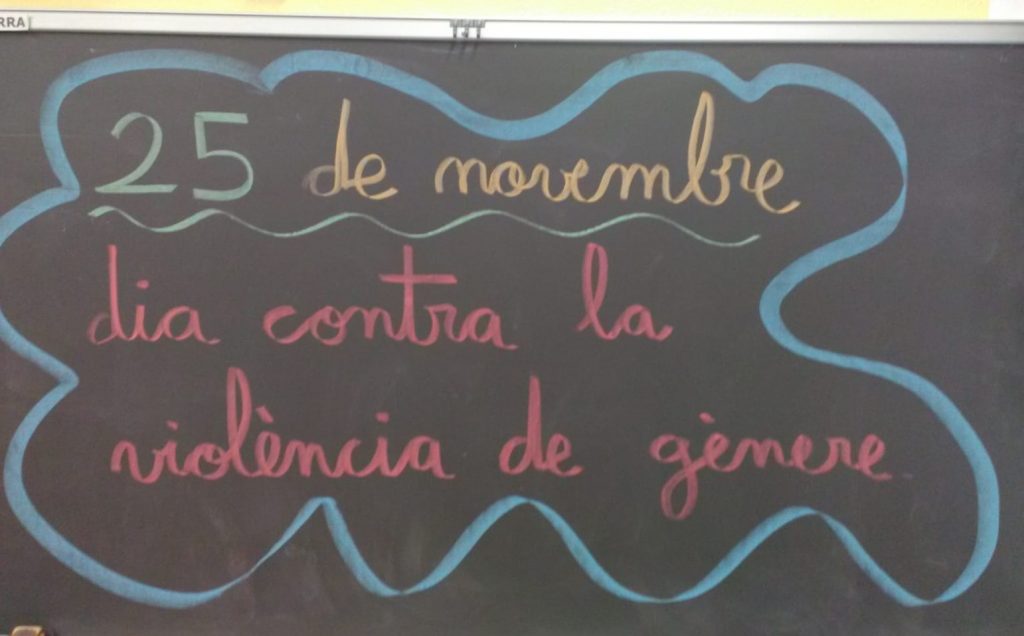 RRA
25 de novembre
dia contra la
violència de gènere